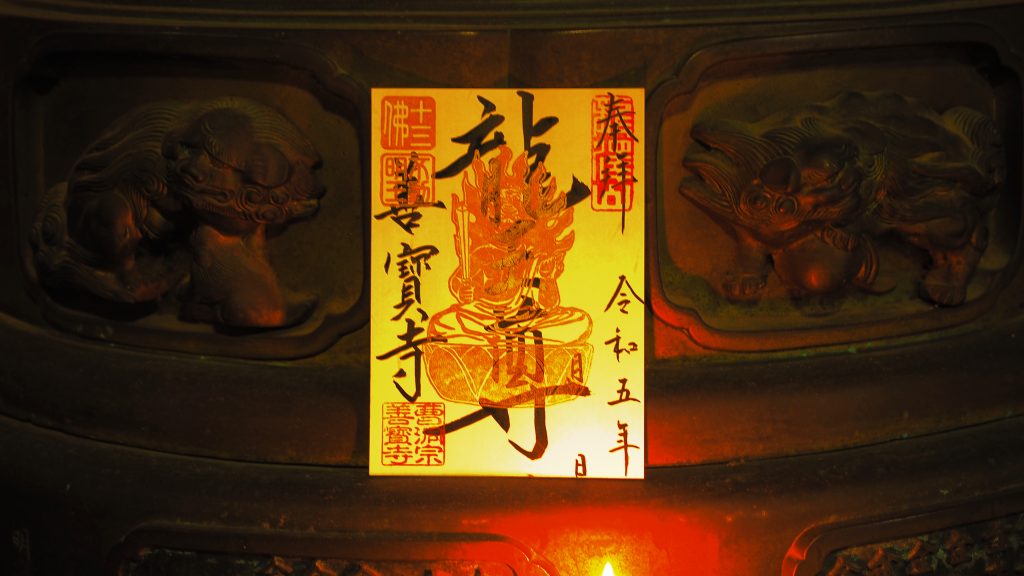 奉拝
令和五年
月　日
龍
尊
十三佛
善寳寺
曹洞宗
善寳寺